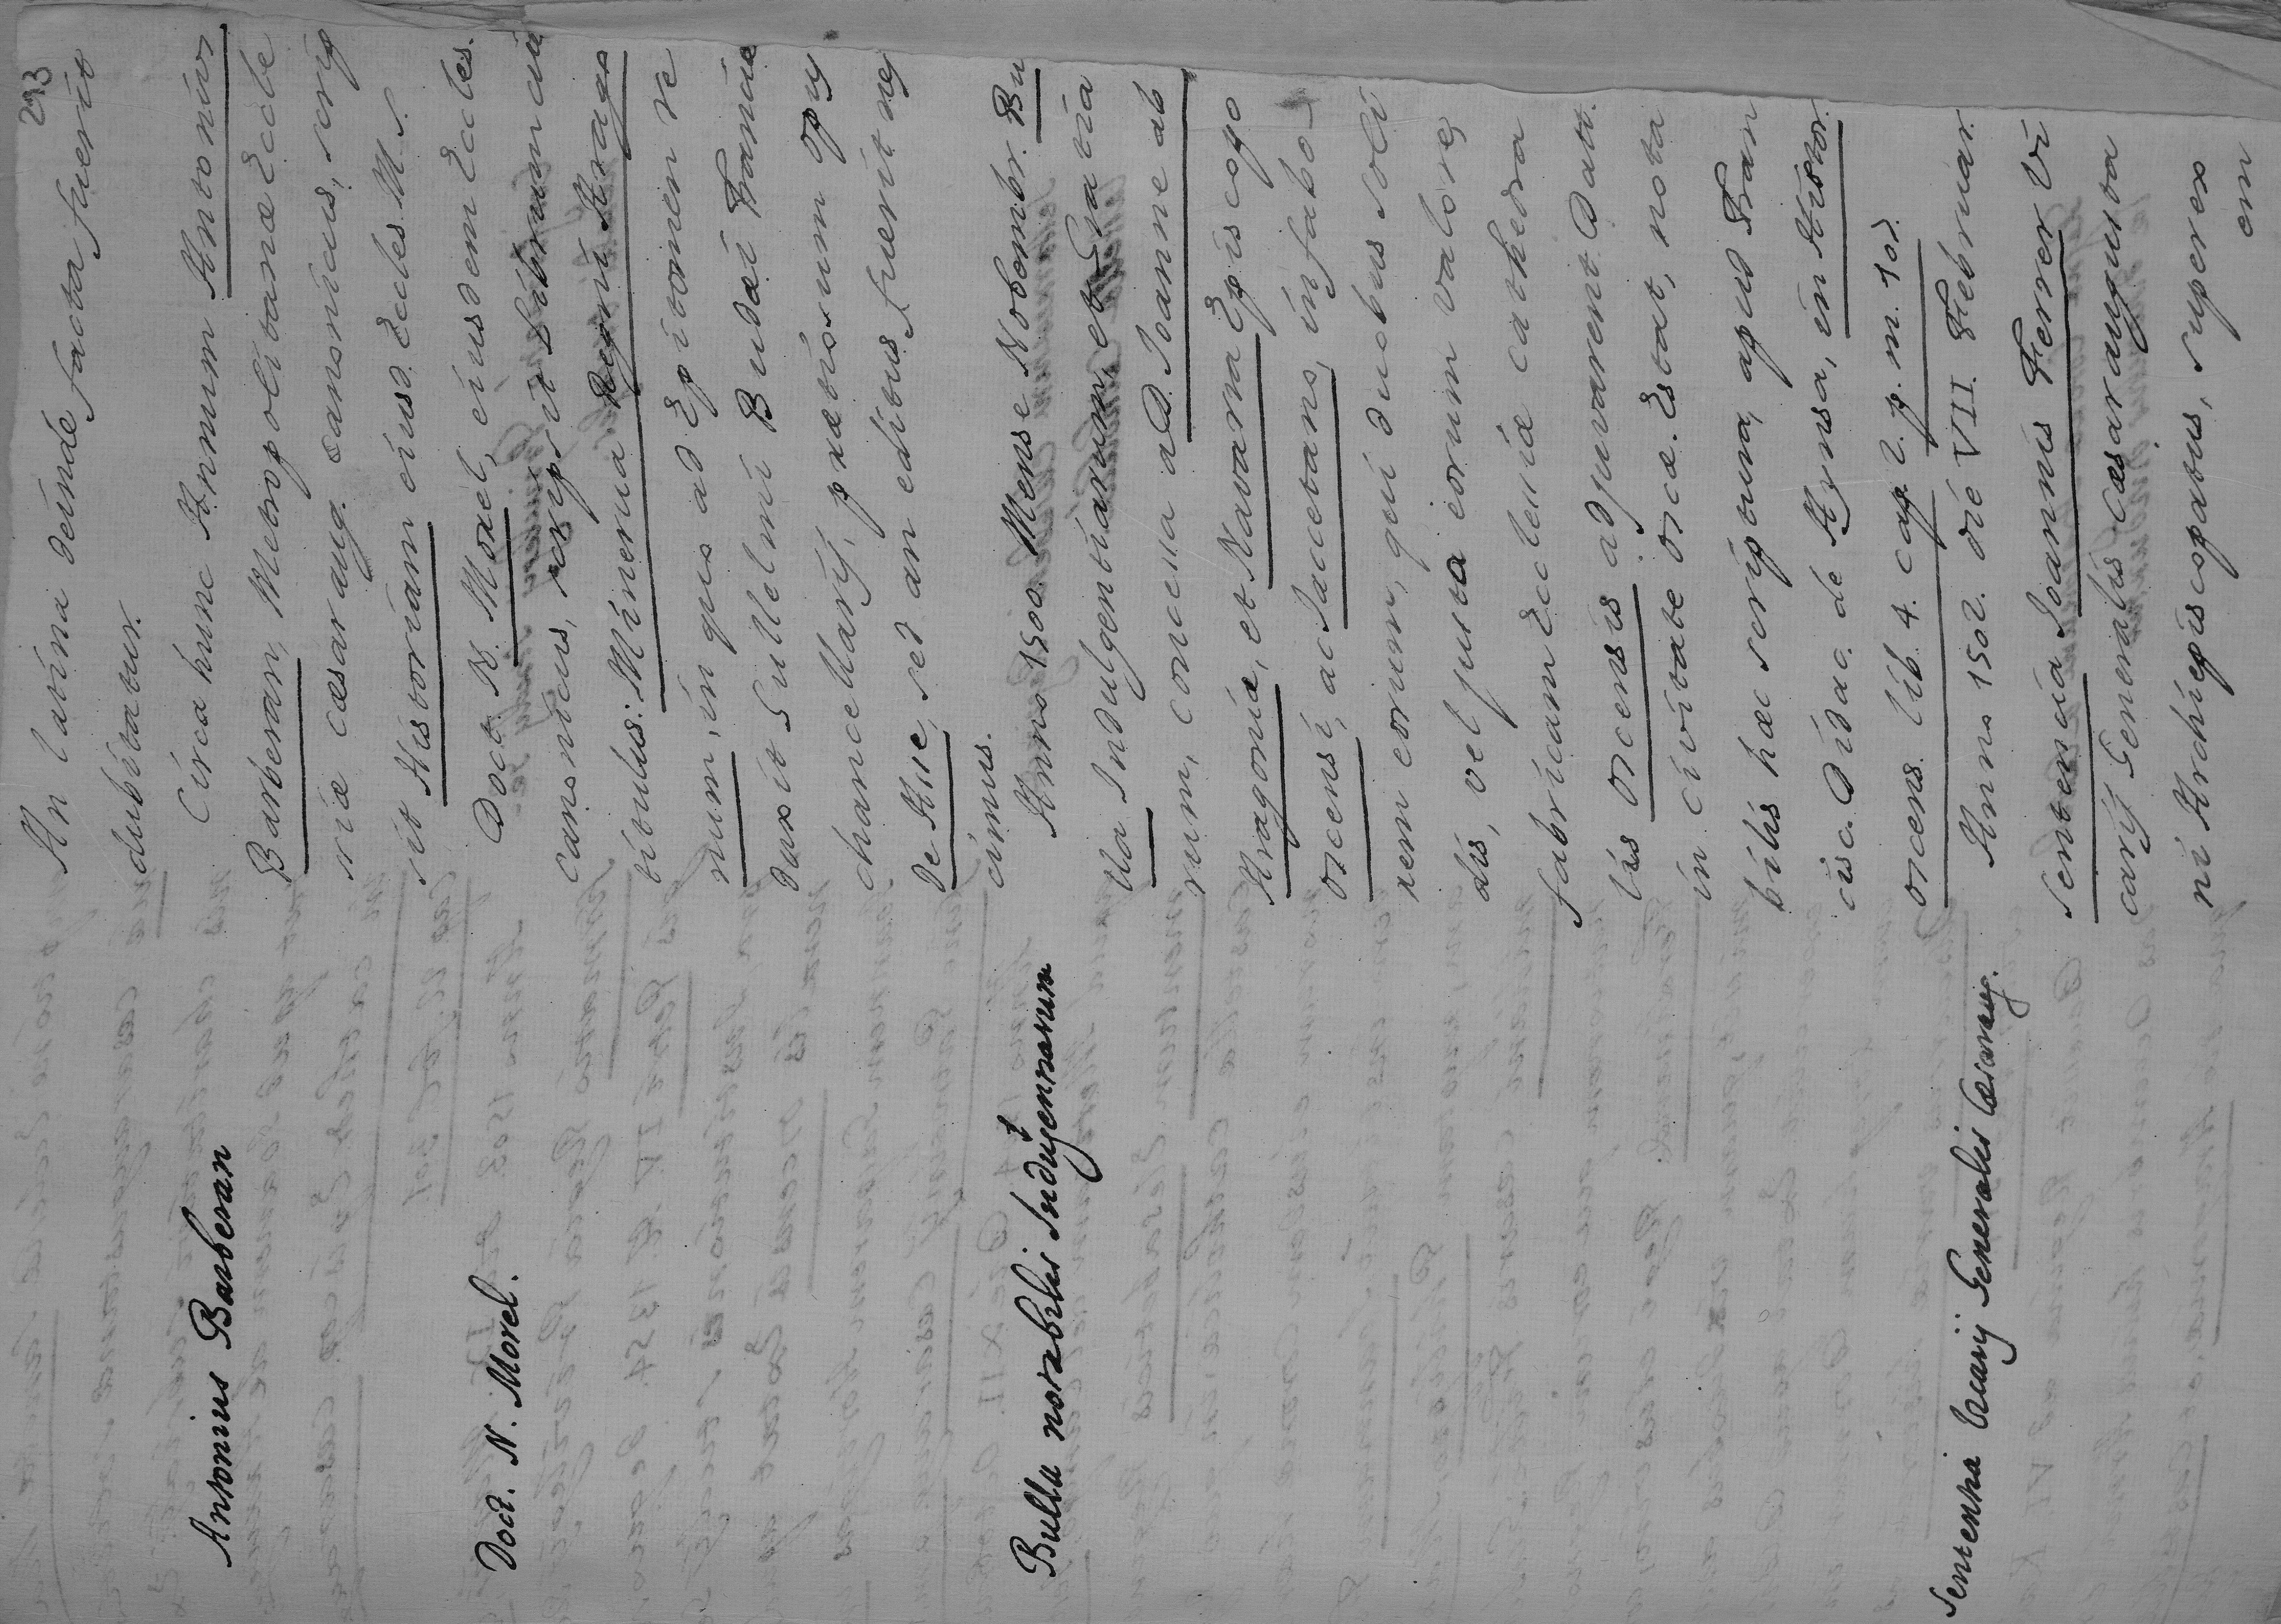 293
An latina deinde facta fuerit
dubitatur.
Antonius Barberan
Circa hunc Annum Antonius
Barberan, Metropolitanæ Eccle
siæ cæsaraug. canonicus, scrip
sit Historiam eiusd. Eccles. M. S.
Doct. N. Morel.
Doct. N. Morel, eiusdem Eccles.
canonicus, scripsit librum cui
titulus: Minerua Regni Arago
num, in quo ad Epitomen re
duxit Gullelmi Budæi Franciæ
chancellarij, prætiosum opus
De Asse, sed an editus fuerit nes
cimus.
Bulla notabilis Indulgentiarum
Anno 1500. Mense Nobembr. Bu
lla Indulgentiarum, et Gratia
rum, concessa a D. Ioanne ab
Aragonia, et Navarra Episcopo
oscensi, ac Iaccetano, in fabo
rem eorum, qui duobus soli
dis, vel justa eorum valore,
fabricam Ecclesiæ cathedra
lis oscensis adjuvarent. Datt.
in civitate oscæ. Estat, nota
bilis hæc scriptura, apud Fran
cisc. Didac. de Aynsa, in Histor.
oscens. lib. 4. cap. 2. p. m. 102.
Sententia Vicarij Generalis Cæsaraug.
Anno 1502. die VII. Februar.
sentencia Ioannis Ferrer Vi
carij Generalis Cæsaraugusta
ni Archiepiscopatus, super ex
em